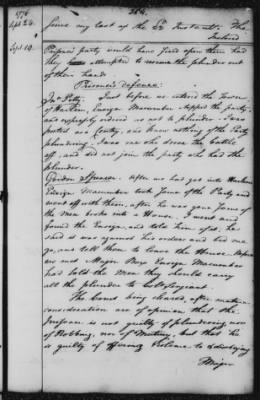 1776
Sept 24
364.
Since my last of the
Sept 19.
Ensign's party would have fired upon them had
they attempted to rescue the plunder out
of their hands.
Prisoner's defence.
Just before we entered the Town
of Harlem, Ensign Macumber stopped the party,
and expressly ordered us not to plunder. I was
posted as a Centry, and knew nothing of the Party
plundering. I was one who drove the Cattle
off, and did not join the party who had the
plunder.
After we had got into Harlem
Ensign Macumber took some of the Party and
went off with them, after he was gone some of
the Men broke into a House. I went and
found the Ensign, and told him of it. he
said it was against his orders and bid me
go, and tell them to leave the House. Before
we met Major Box Ensign Macumber
had told the Men they should carry
all the plunder to
The Court being cleared, after mature
consideration are of opinion that the
Prisoner is not guilty of plundering, nor
of Robbing, nor of Mutiny, but that he
is guilty of offering Violence to & disobeying
Major